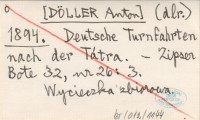 [DÖLLER Anton] (dlr.)
1894. Deutsche Turnfahrten
nach der Tátra. – Zipser
Bote 32, nr 26: 3.
Wycieczka zbiorowa.